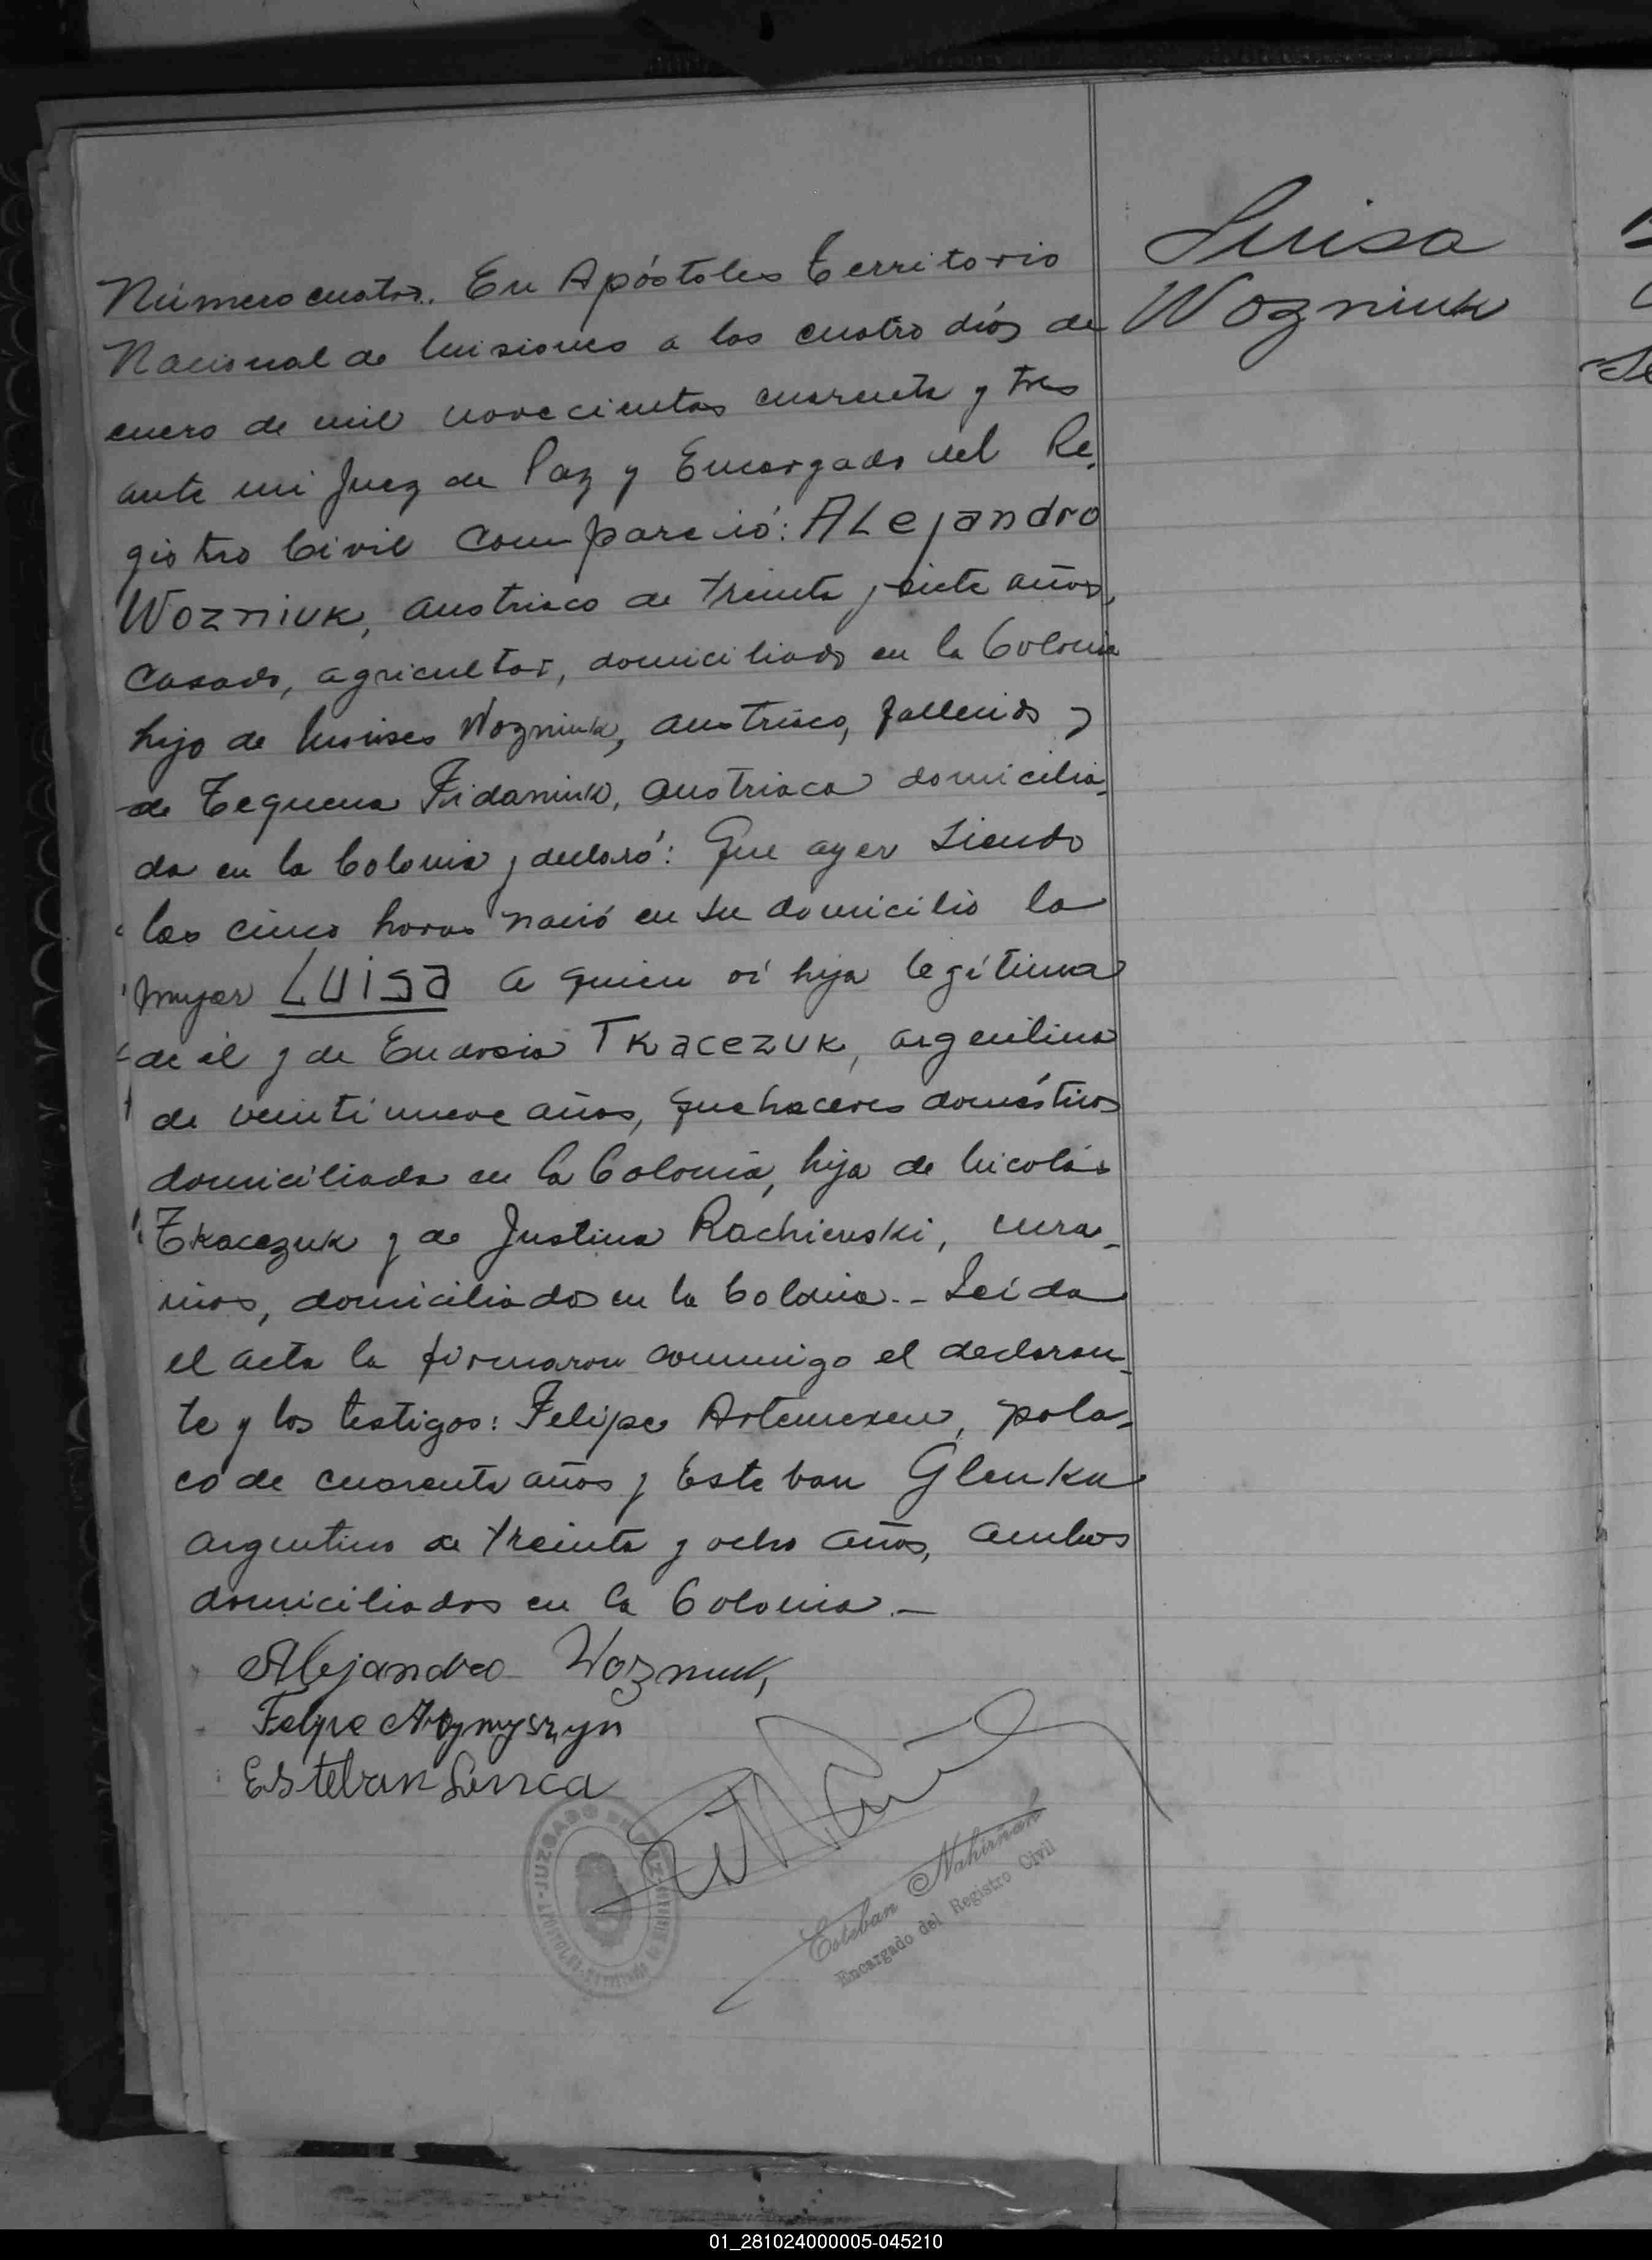 Luisa
Wozniuk
Número cuatro. En Apóstoles Territorio
Nacional de Misiones a los cuatro días de
enero de mil novecientos cuarenta y tres
ante mi Juez de Paz y Encargado del Re-
gistro Civil compareció: ALejandro
Wozniuk, austriaco de treinta y siete años,
casado, agricultor, domiciliado en la Colonia
hijo de Moises Wozniuk, austriaco, fallecido y
de Tequena Fidaniuk, austriaca domicilia-
da en la Colonia y declaró: Que ayer siendo
las cinco horas nació en su domicilio la
mujer LUisa a quien vi hija legítima
de él y de Eudosia Tkacezuk, argentina
de veintinueve años, quehaceres domésticos
domiciliada en la Colonia, hija de Nicolás
Tkacezuk y de Justina Rachienski, ucra-
nios, domiciliados en la Colonia.- Leída
el acta la firmaron conmigo el declaran-
te y los testigos: Felipe Artemexen, pola-
co de cuarenta años y Esteban Glenka
argentino de treinta y ocho años, ambos
domiciliados en la Colonia.-
Alejandro Wozniuk,
Felipe
Esteban Lenca
JUZGADO DE PAZ
Esteban Nahirñak
Encargado del Registro Civil
01_281024000005-045210